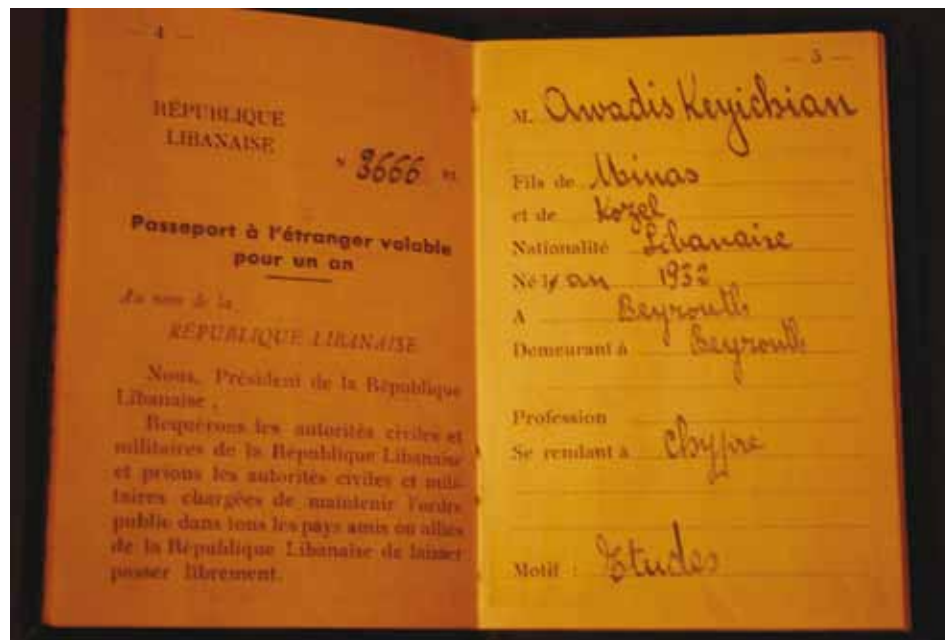 — 4 —
RÉPUBLIQUE
LIBANAISE
N 3666
Passeport à l'étranger valable
pour un an
Au nom de la
RÉPUBLIQUE LIBANAISE
Nous, Président de la République
Libanaise,
Requérons les autorités civiles et
militaires de la République Libanaise
et prions les autorités civiles et mili-
taires chargées de maintenir l'ordre
public dans tous les pays amis ou alliés
de la République Libanaise de laisser
passer librement.
— 5 —
M. Awadis Keyichian
Fils de Minas
et de Kozel
Nationalité Libanaise
Né l' an 1932
A Beyrouth
Demeurant à Beyrouth
Profession
Se rendant à Chypre
Motif : Etudes